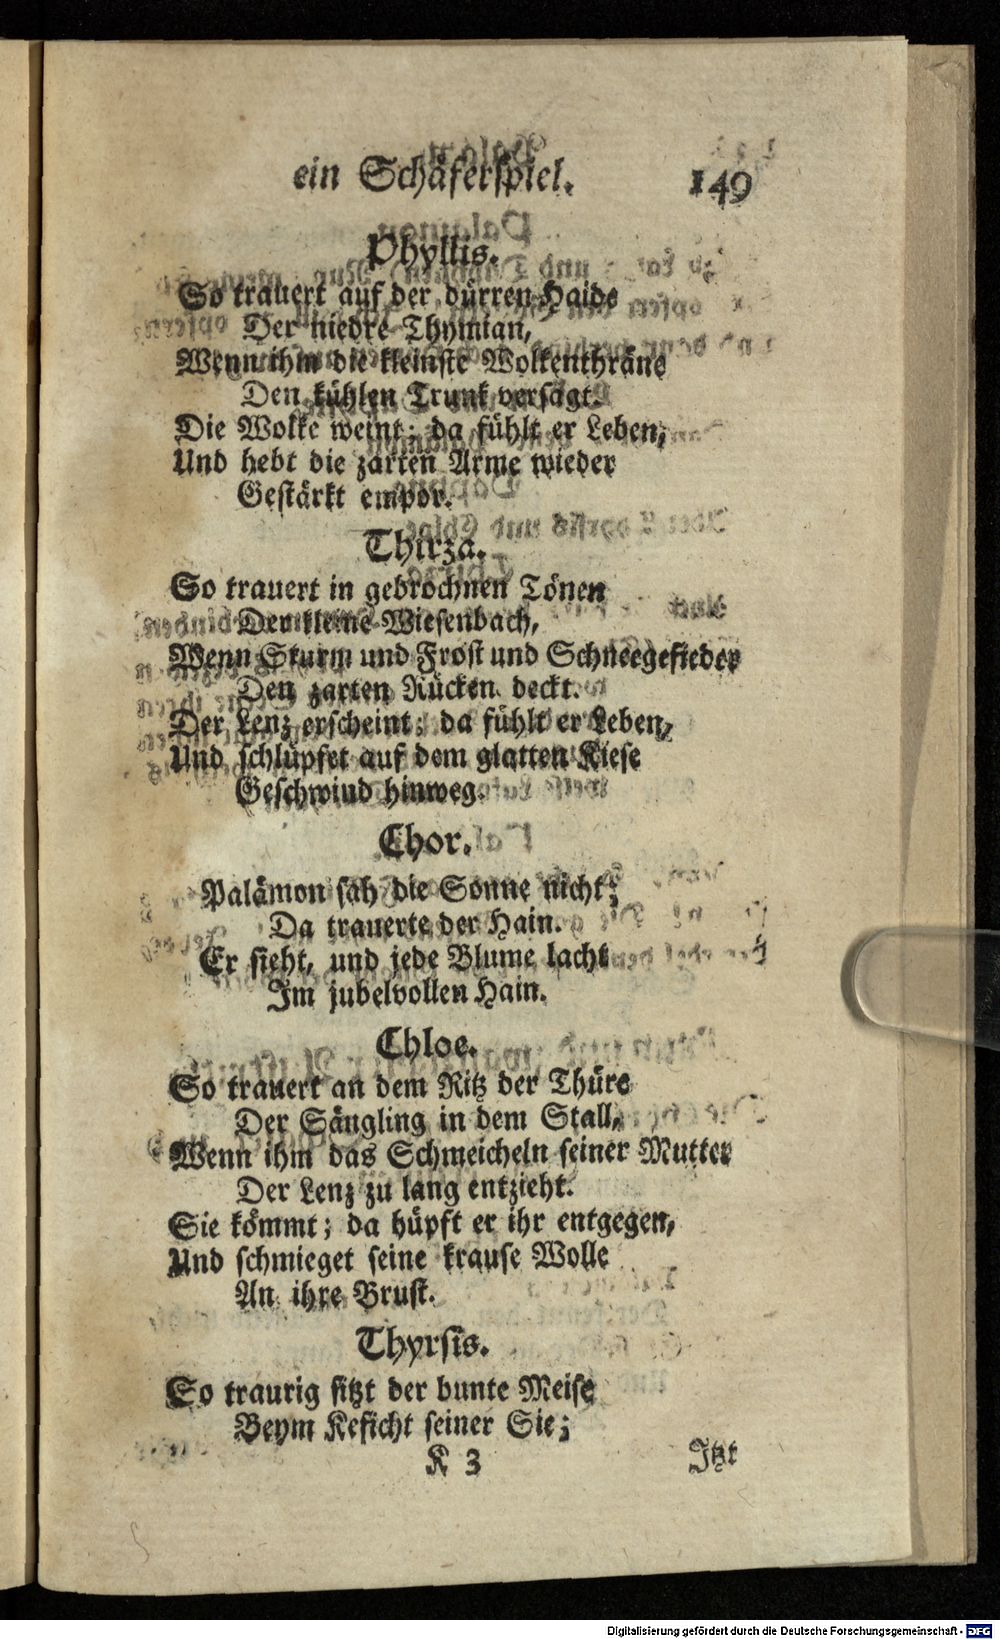 ein Schäferspiel. 149
Phyllis.
So trauert auf der dürren Haide
Der niedre Thymian,
Wenn ihm die kleinste Wolkenthräne
Den kühlen Trunk versagt.
Die Wolke weint; da fühlt er Leben,
Und hebt die zarten Arme wieder
Gestärkt empor.
Thirza.
So trauert in gebrochnen Tönen
Der kleine Wiesenbach,
Wenn Sturm und Frost und Schneegefieder
Den zarten Rücken deckt.
Der Lenz erscheint; da fühlt er Leben,
Und schlüpfet auf dem glatten Kiese
Geschwind hinweg.
Chor.
Palämon sah die Sonne nicht;
Da trauerte der Hain.
Er sieht, und jede Blume lacht
Im jubelvollen Hain.
Chloe.
So trauert an dem Ritz der Thüre
Der Säugling in dem Stall,
Wenn ihm das Schmeicheln seiner Mutter
Der Lenz zu lang entzieht.
Sie kömmt; da hüpft er ihr entgegen,
Und schmieget seine krause Wolle
An ihre Brust.
Thyrsis.
So traurig sitzt der bunte Meise
Beym Keficht seiner Sie;
K 3 Itzt
Digitalisierung gefördert durch die Deutsche Forschungsgemeinschaft - DFG